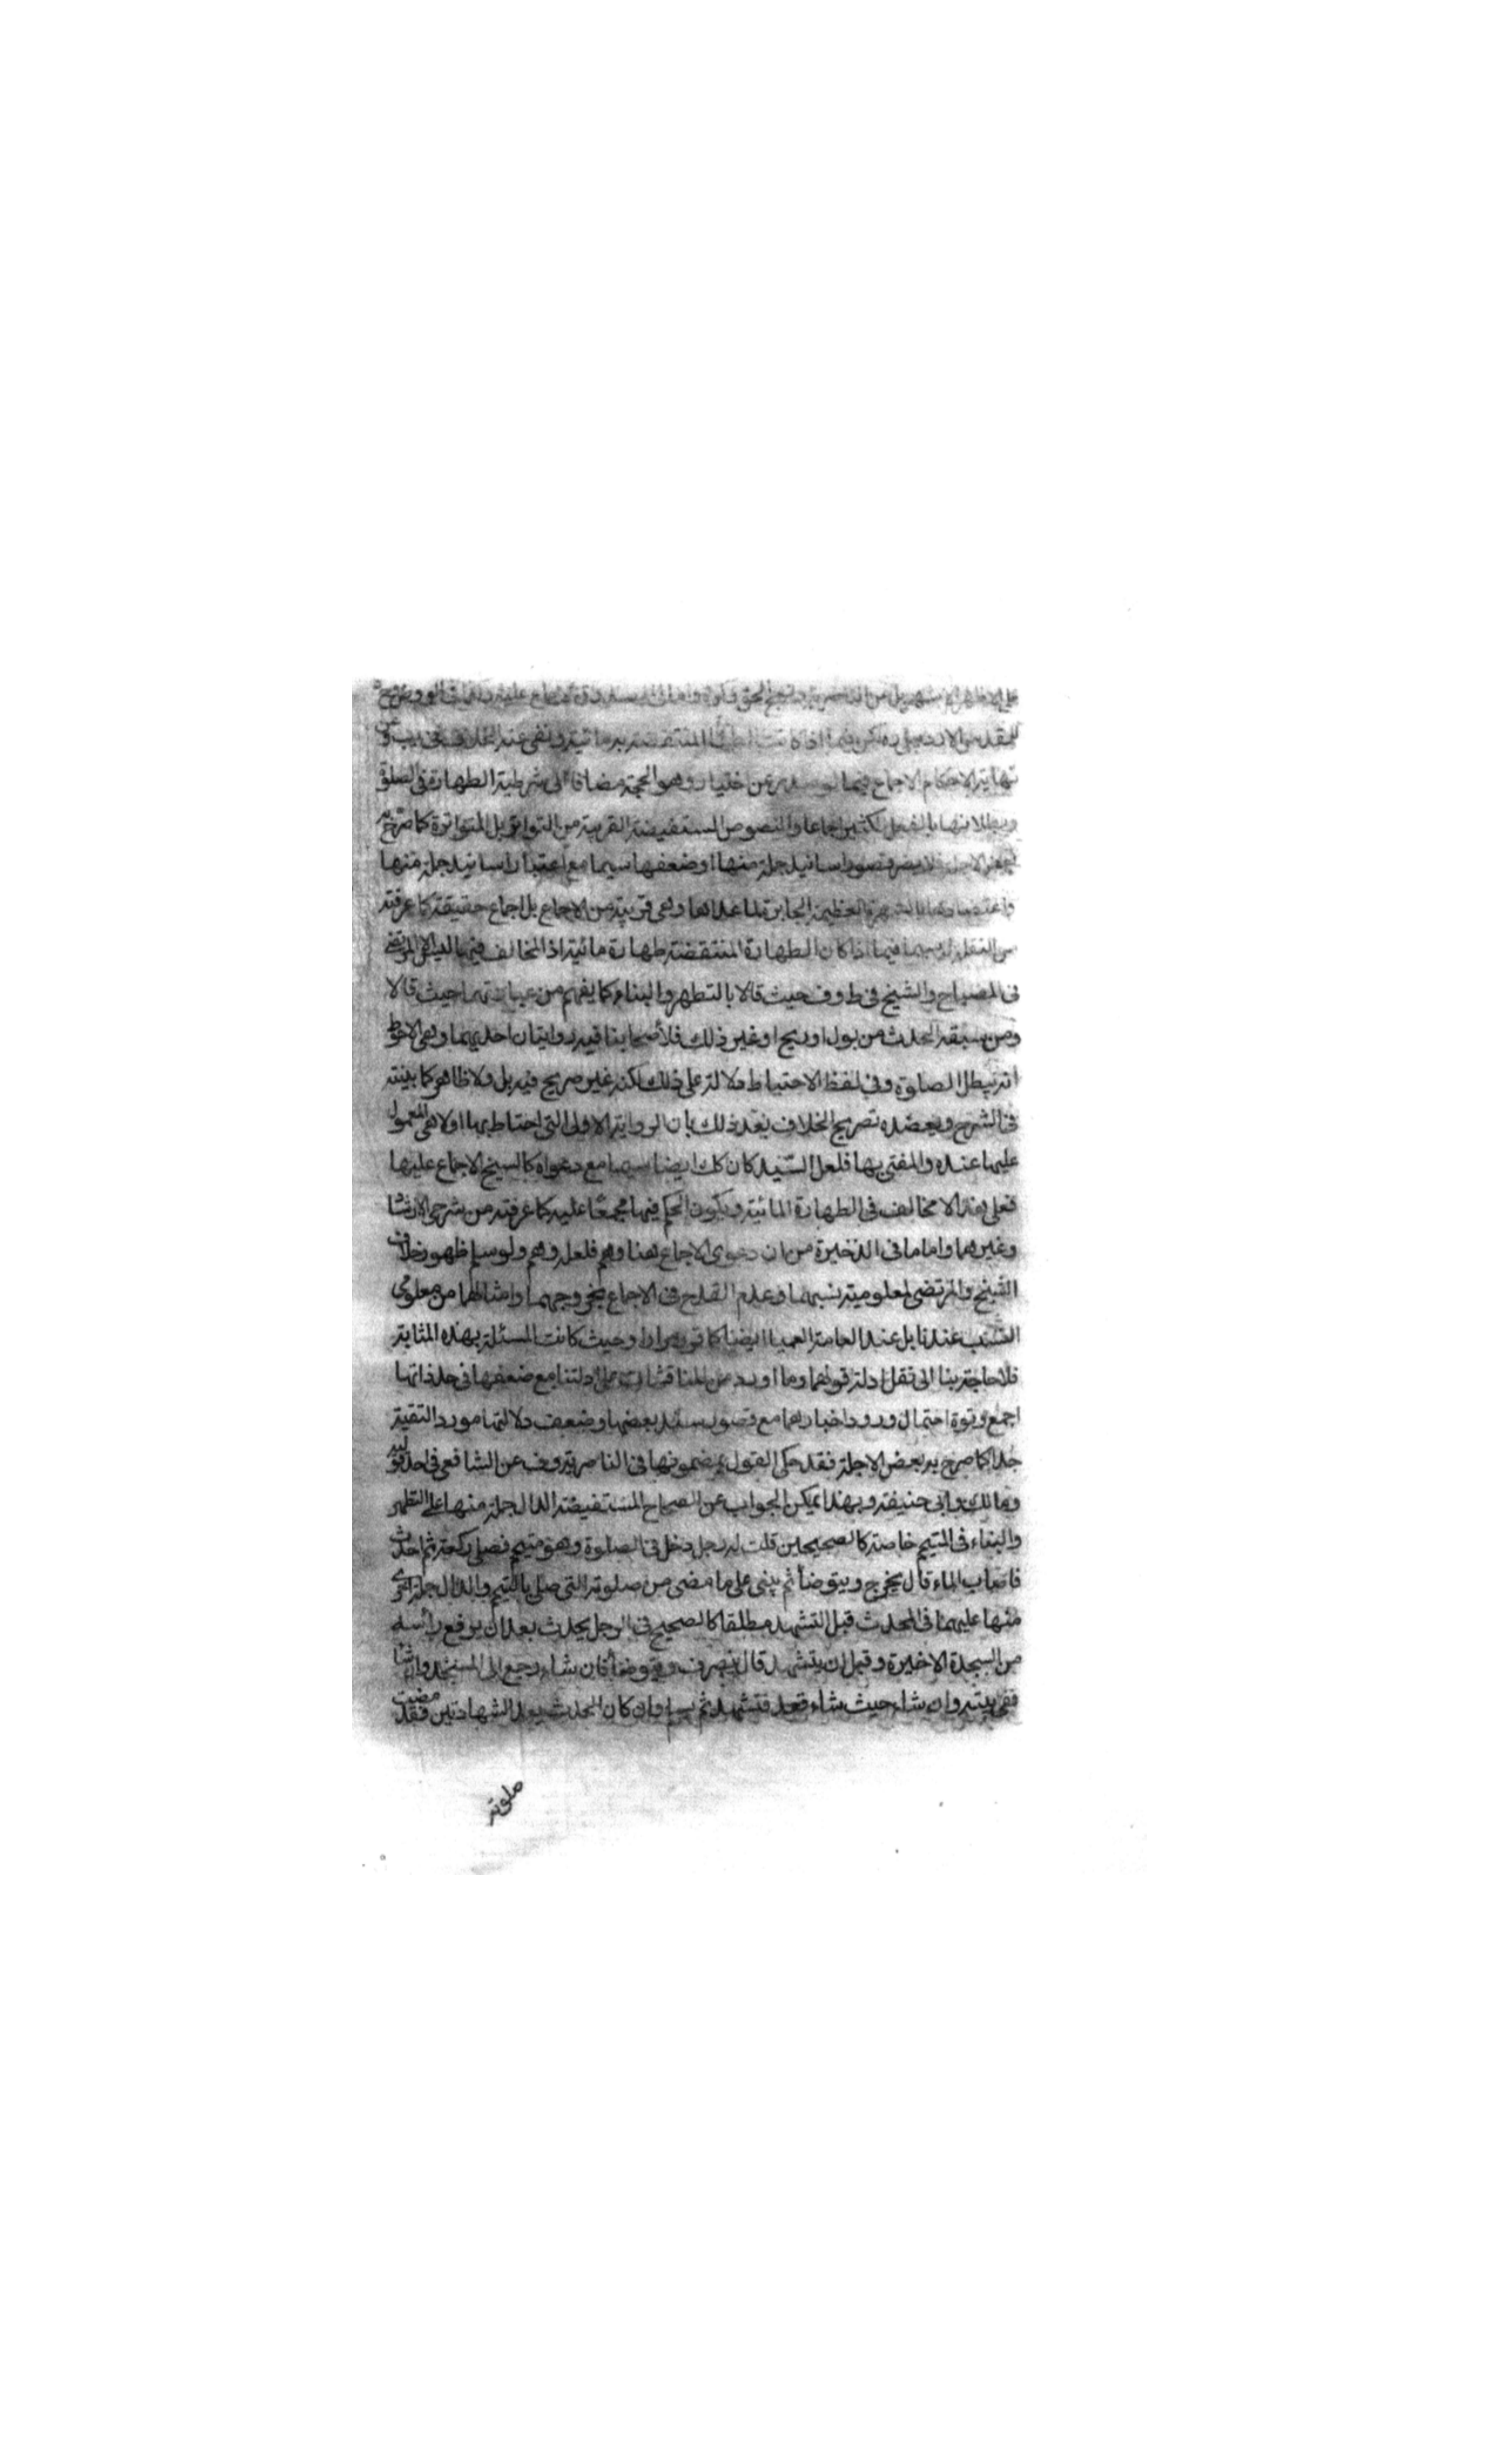 على الاظهر الاشهر بل عن الناصرية ونهج الحق وكرة وامالى الصدوق الاجماع عليه
للمقدس الاردبيلى ره لكن فيما اذا كانت الطهارة المنتقضة به مائية ونفى عنه الخلاف فى يب وعن
نهاية الاحكام الاجماع فيما لو صدر عن اختيار وهو الحجة مضافا الى شرطية الطهارة فى الصلوة
وبطلانها بالفعل الكثير اجماعا والنصوص المستفيضة القريبة من التواتر بل المتواترة كما صرح به
بعض الاجلة فلا يضر قصور اسانيد جملة منها او ضعفها سيما مع اعتبار اسانيد جملة منها
واعتضادها بالشهرة العظيمة الجابرة لما عداها وهى قريبة من الاجماع بل اجماع حقيقة كما عرفته
من النقلة له سيما فيما اذا كان الطهارة المنتقضة طهارة مائية اذ المخالف فيها ليس الا المرتضى
فى المصباح والشيخ فى ط وف حيث قالا بالتطهر والبناء كما يفهم من عبارتهما حيث قالا
ومن سبقه الحدث من بول او ريح او غير ذلك فلأصحابنا فيه روايتان احديهما وهى الاحوط
انه يبطل الصلوة وفى لفظ الاحتياط دلالة على ذلك لكنه غير صريح فيه بل ولا ظاهر كما بينته
فى الشرح ويعضده تصريح الخلاف بعد ذلك بان الرواية الاولى التى احتاط بها اولا هى المعمول
عليها عنده والمفتى بها فلعل السّيد كان كك ايضا سيما مع دعواه كالشيخ الاجماع عليها
فعلى هذا لا مخالف فى الطهارة المائية ويكون الحكم فيها مجمعًا عليه كما عرفته من شرحى الارشاد
وغيرهما واما ما فى الذخيرة من ان دعوى الاجماع هنا وهم فلعله وهم ولو سلم ظهور خلاف
الشيخ والمرتضى لمعلومية نسبهما وعدم القدح فى الاجماع بخروجهما وامثالهما من معلومى
النسب عندنا بل عند العامة العمياء ايضا كما قرر مرارا وحيث كانت المسئلة بهذه المثابة
فلا حاجة بنا الى نقل ادلة قولهما وما اورد من المناقشات على ادلتنا مع ضعفها فى حد ذاتها
اجمع وقوة احتمال ورود اخبارهما مع قصور سند بعضها وضعف دلالتها مورد التقية
جدا كما صرح به بعض الاجلة فقد حكى القول بمضمونها فى الناصرية وف عن الشافعى فى احد قوليه
ومالك وابى حنيفة وبهذا يمكن الجواب عن الصحاح المستفيضة الدال جملة منها على التطهر
والبناء فى المتيمم خاصة كالصحيحين قلت له رجل دخل فى الصلوة وهو متيمم فصلى ركعة ثم احدث
فاصاب الماء قال يخرج ويتوضأ ثم يبنى على ما مضى من صلوته التى صلى بالتيمم والدال جملة اخرى
منها عليهما فى المحدث قبل التشهد مطلقا كالصحيح فى الرجل يحدث بعد ان يرفع رأسه
من السجدة الاخيرة وقبل ان يتشهد قال ينصرف ويتوضأ فان شاء رجع الى المسجد وان شاء
ففى بيته وان شاء حيث شاء قعد فتشهد ثم يسلم وان كان الحدث بعد الشهادتين فقد مضت
صلوته